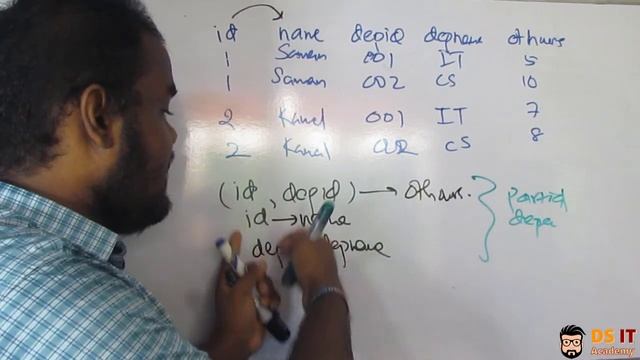 id name depid depname othours
1 Saman 001 IT 5
1 Saman 002 CS 10
2 Kamal 001 IT 7
2 Kamal 002 CS 8
(id, depid) → othours.
id → name
depname
partial
depe
DS IT
Academy